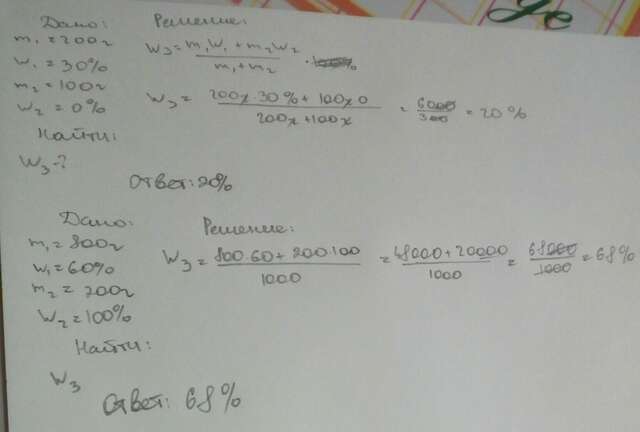 Дано:
m₁=200г
W₁=30%
m₂=100г
W₂=0%
Найти:
W₃-?
Решение:
W₃=(m₁W₁+m₂W₂)/(m₁+m₂)·
W₃=(200г·30%+100г·0)/(200г+100г)=6000/300=20%
Ответ:20%
Дано:
m₁=800г
W₁=60%
m₂=200г
W₂=100%
Найти:
W₃
Решение:
W₃=(800·60+200·100)/1000=(48000+20000)/1000=68000/1000=68%
Ответ: 68%